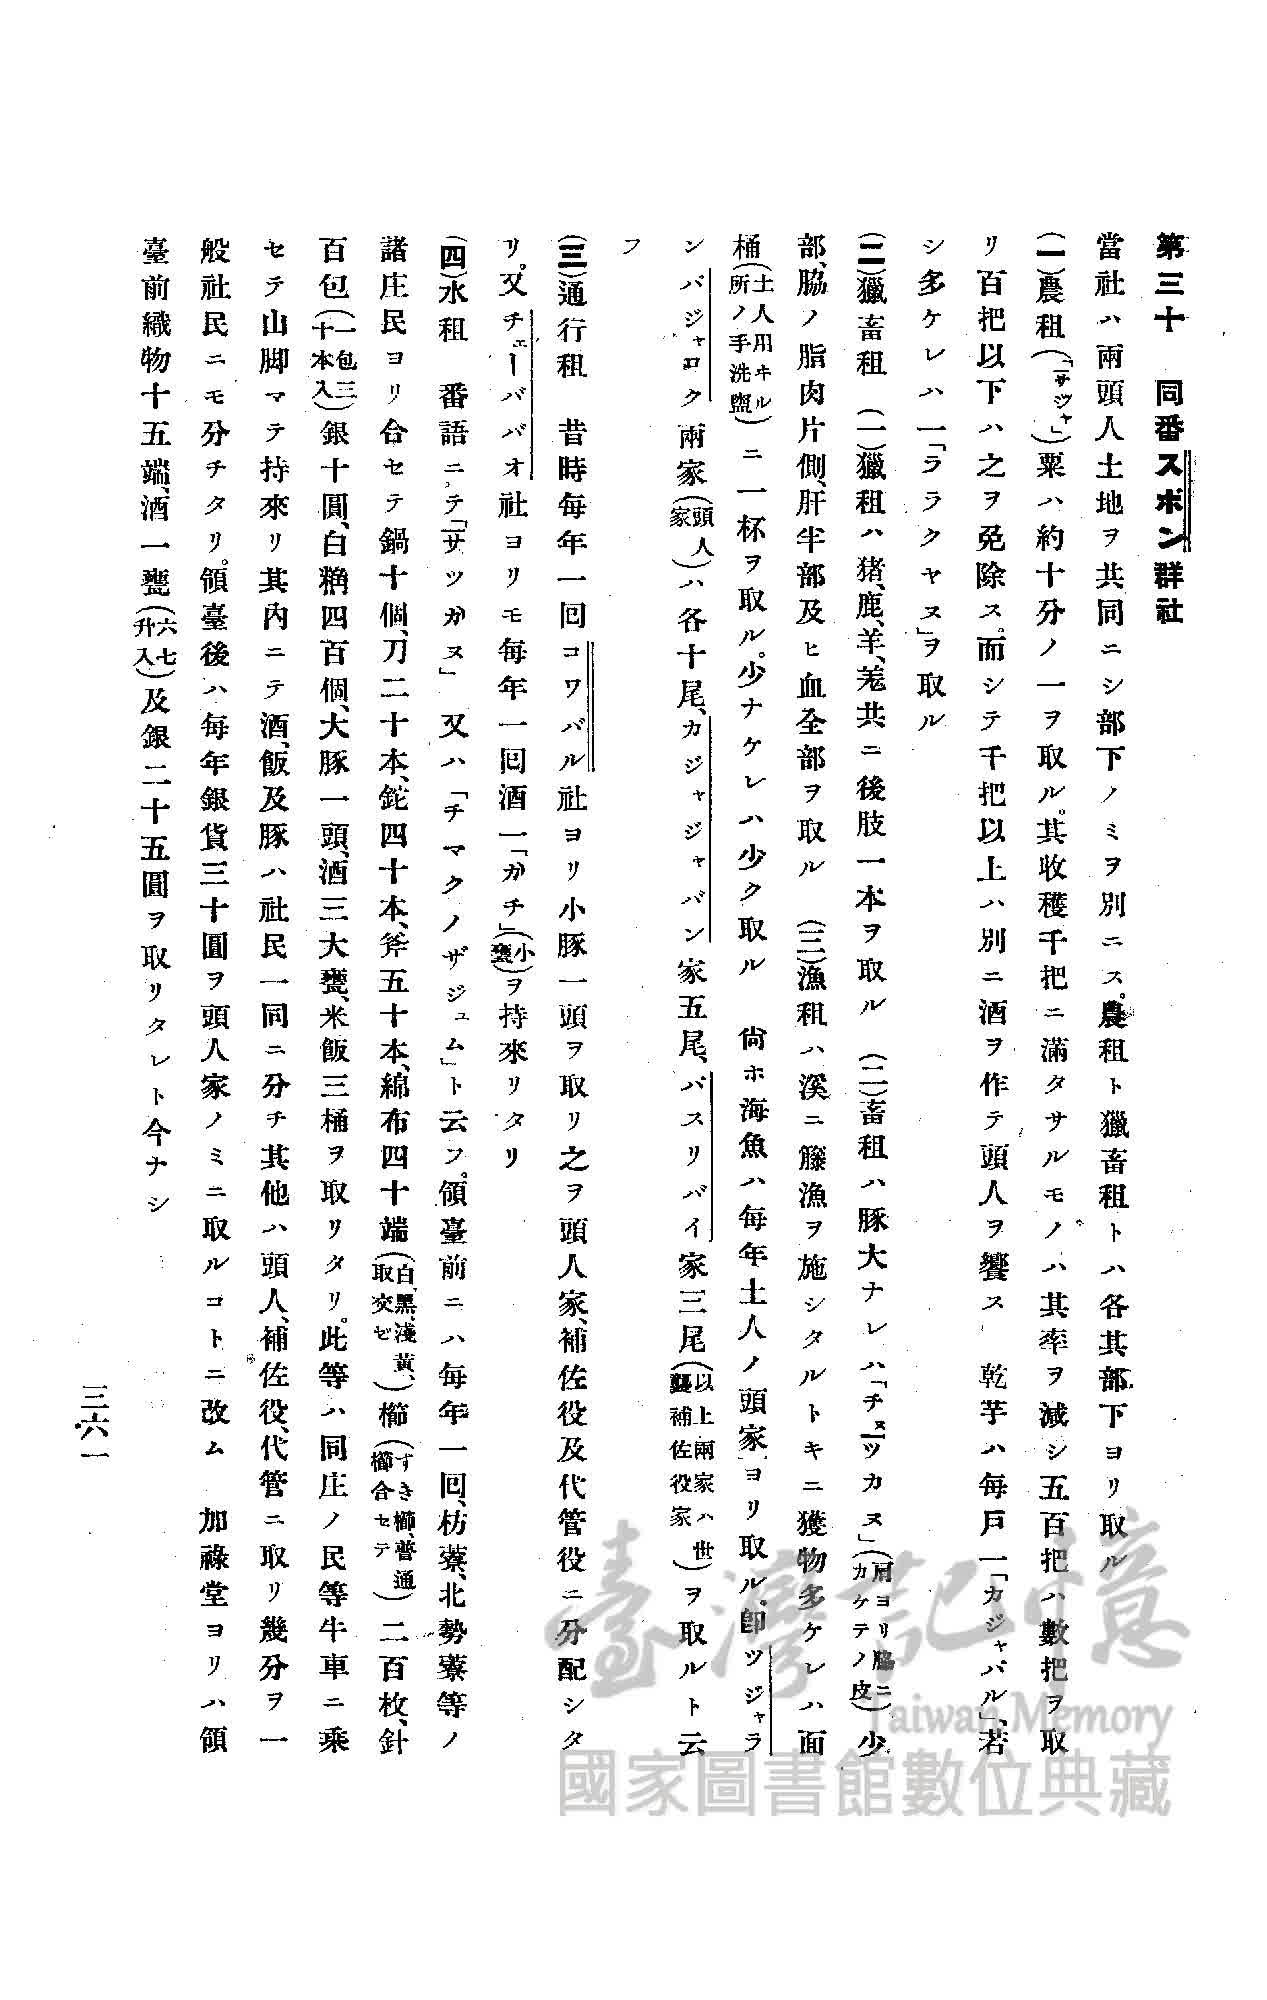 第三十　同番スボン群社
當社ハ兩頭人土地ヲ共同ニシ部下ノミヲ別ニス。農租ト獵畜租トハ各其部下ヨリ取ル
(一)農租(「サジャ」)粟ハ約十分ノ一ヲ取ル。其收穫千把ニ滿タサルモノハ其率ヲ減シ五百把ハ數把ヲ取
リ百把以下ハ之ヲ免除ス。而シテ千把以上ハ別ニ酒ヲ作テ頭人ヲ饗ス　乾芋ハ每戶一「カジャバル」、若
シ多ケレハ一「ララクヤヌ」ヲ取ル
(二)獵畜租　(一)獵租ハ猪、鹿、羊、羗共ニ後肢一本ヲ取ル　(二)畜租ハ豚大ナレハ「チヌツカヌ」(肩ヨリ脇ニカケテノ皮)少
部、脇ノ脂肉片側、肝半部及ヒ血全部ヲ取ル　(三)漁租ハ溪ニ籐漁ヲ施シタルトキニ獲物多ケレハ面
桶(土人用ヰル所ノ手洗盥)ニ一杯ヲ取ル。少ナケレハ少ク取ル　尙ホ海魚ハ每年土人ノ頭家ヨリ取ル。卽ツジャラ
ンバジャロク兩家(頭人家)ハ各十尾、カジャジャバン家五尾、バスリバイ家三尾(以上兩家ハ世襲補佐役家)ヲ取ルト云
フ
(三)通行租　昔時每年一回コワバル社ヨリ小豚一頭ヲ取リ之ヲ頭人家、補佐役及代管役ニ分配シタ
リ。又チェーババオ社ヨリモ每年一回酒一「ガチ」(小甕)ヲ持來リタリ
(四)水租　番語ニテ「サツガヌ」又ハ「チマクノザジュム」ト云フ。領臺前ニハ每年一回、枋藔、北勢藔等ノ
諸庄民ヨリ合セテ鍋十個、刀二十本、鉈四十本、斧五十本、綿布四十端(白、黑、淺黃、取交ゼ)櫛(すき櫛、普通櫛合セテ)二百枚、針
百包(一包三十本入)銀十圓、白糖四百個、大豚一頭、酒三大甕、米飯三桶ヲ取リタリ。此等ハ同庄ノ民等牛車ニ乘
セテ山脚マテ持來リ其內ニテ酒、飯及豚ハ社民一同ニ分チ其他ハ頭人、補佐役、代管ニ取リ幾分ヲ一
般社民ニモ分チタリ。領臺後ハ每年銀貨三十圓ヲ頭人家ノミニ取ルコトニ改ム　加祿堂ヨリハ領
臺前織物十五端、酒一甕(六七升入)及銀二十五圓ヲ取リタレト今ナシ
三六一
臺灣記憶
Taiwan Memory
國家圖書館數位典藏